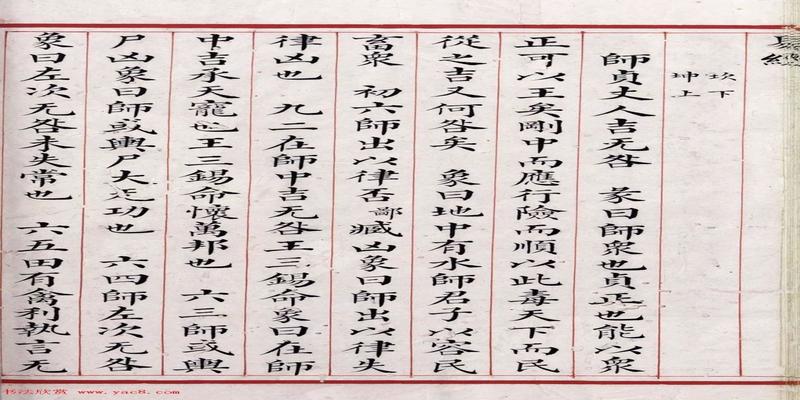 坎下
坤上
師貞丈人吉无咎 彖曰師衆也貞正也能以衆
正可以王矣剛中而應行險而順以此毒天下而民
從之吉又何咎矣 象曰地中有水師君子以容民
畜衆 初六師出以律否鄙臧凶象曰師出以律失
律凶也 九二在師中吉无咎王三錫命象曰在師
中吉承天寵也王三錫命懷萬邦也 六三師或輿
尸凶象曰師或輿尸大无功也 六四師左次无咎
象曰左次无咎未失常也 六五田有禽利執言无
书法欣赏 www.yac8.com